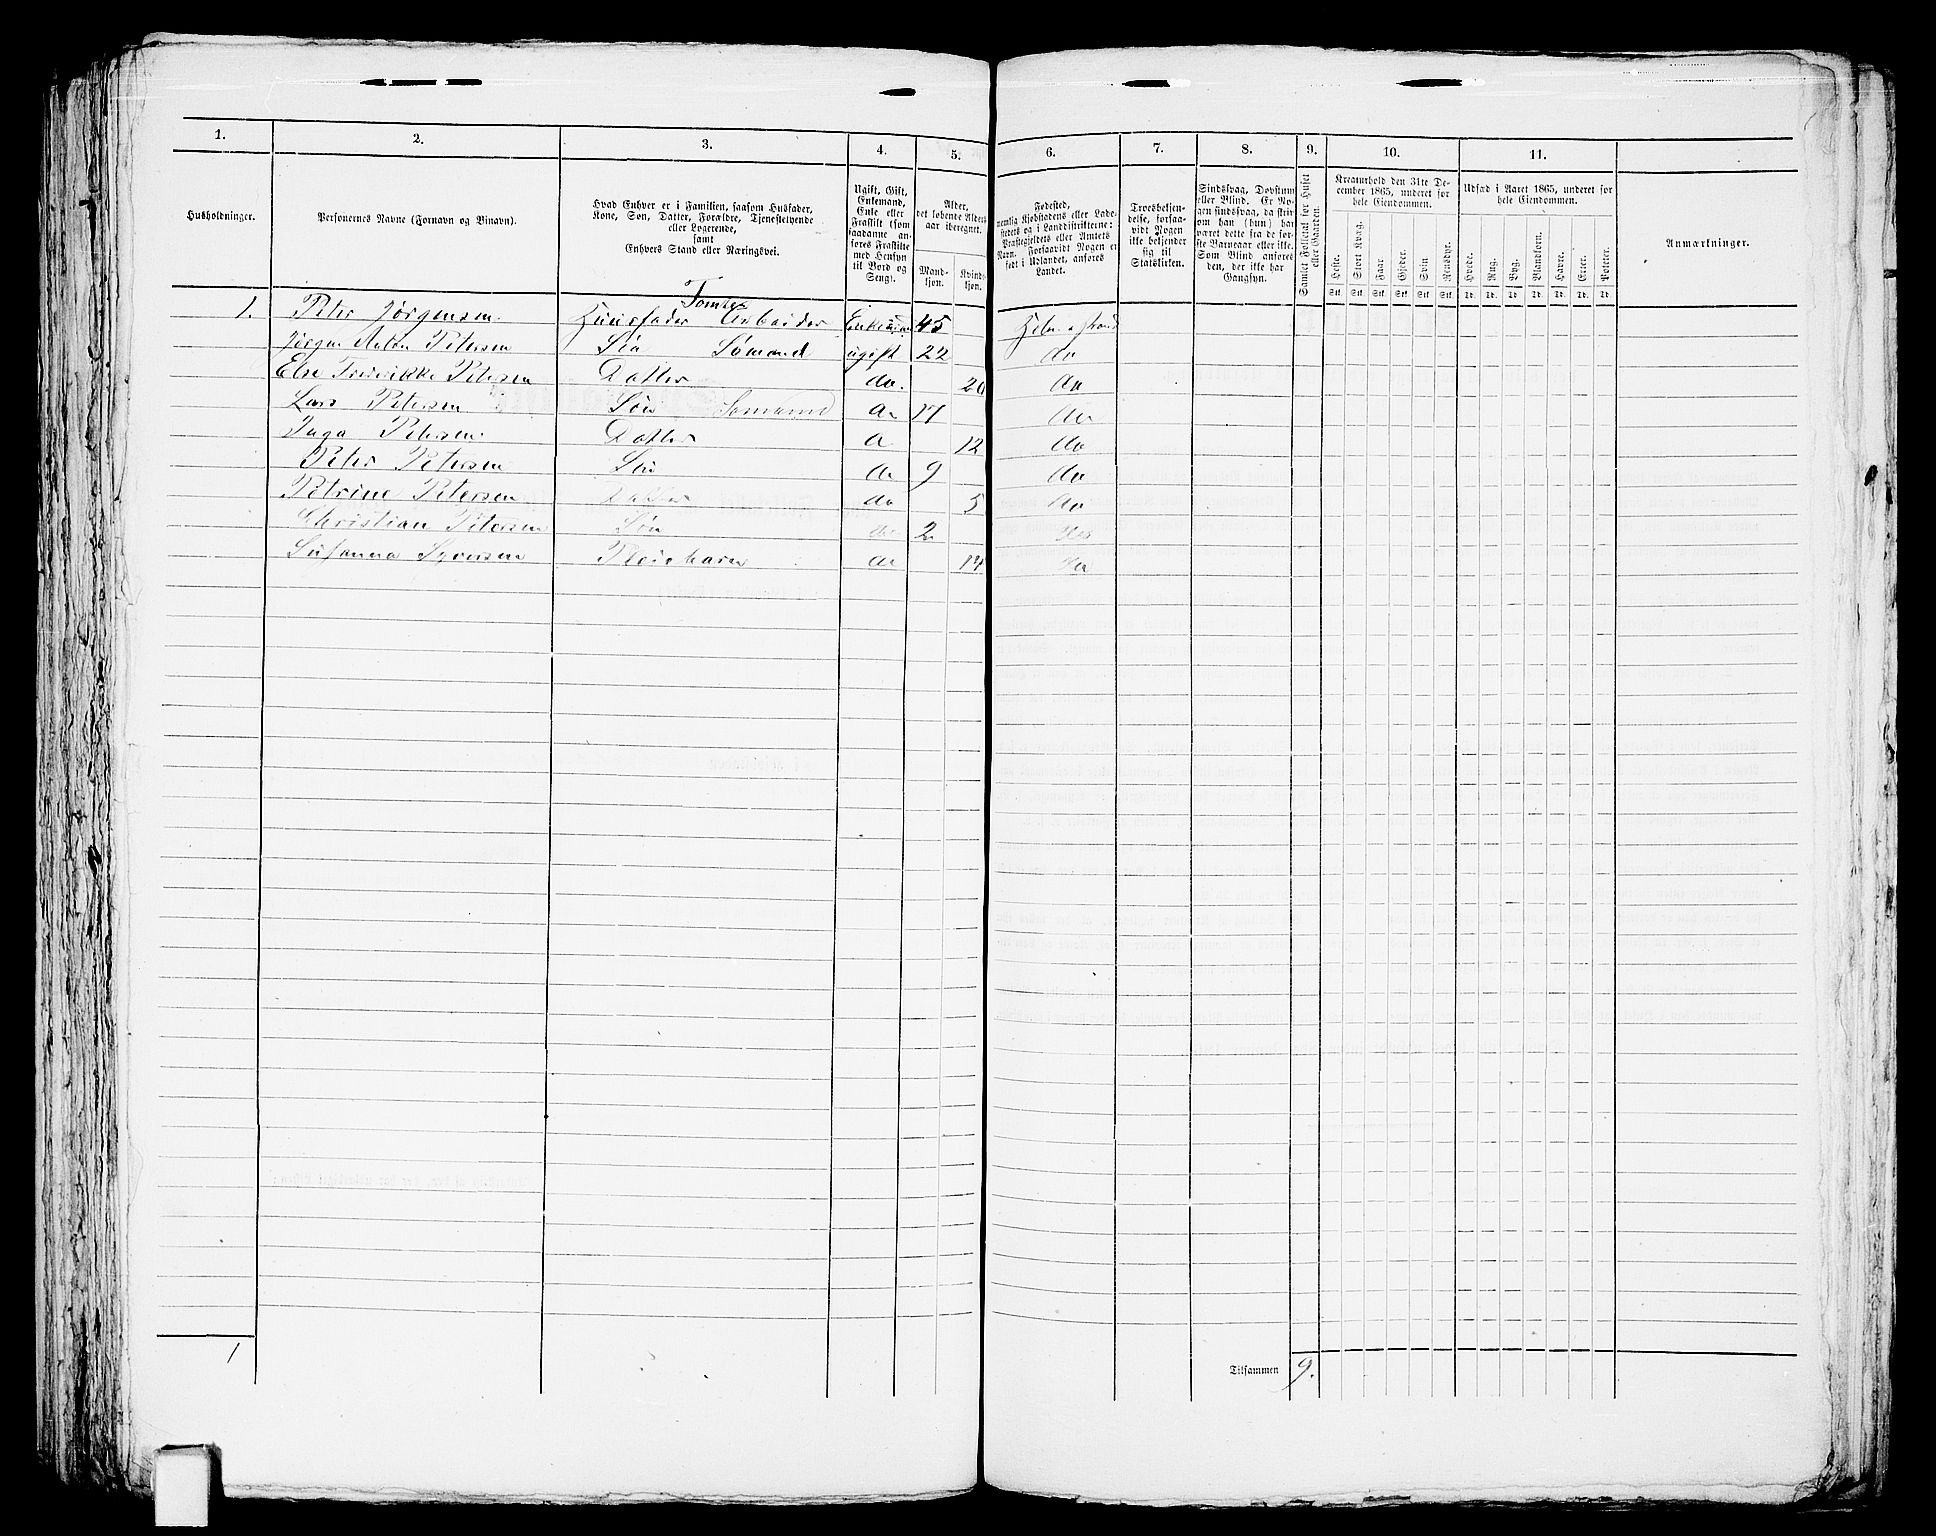 1. 2. 3. 4. 5. 6. 7. 8. 9. 10. 11.
Husholdninger.
Personernes Navne (Fornavn og Tilnavn).
Hvad Enhver er i Familien, saasom Husfader,
Kone, Søn, Datter, Forældre, Tjenestetyende
eller Logerende,
samt
Enhvers Stand eller Næringsvei.
Ugift, Gift,
Enkemand,
Enke eller
Fraskilt (som
saadanne an-
føres Fraskilte
med Hensyn
til Bord og
Seng).
Alder,
det løbende Alders-
aar iberegnet.
Mand-
kjøn.
Kvinde-
kjøn.
Fødested,
nemlig Kjøbstadens eller Lade-
stedets og i Landdistrikterne:
Præstegjeldets eller Amtets
Navn. Forsaavidt Nogen er
født i Udlandet, anføres
Landet.
Troesbekjen-
delse, forsaa-
vidt Nogen
ikke bekjender
sig til
Statskirken.
Sindssvag, Døvstum
eller Blind. Er No-
gen sindssvag, da skriv
om han (hun) har
været dette fra de før-
ste Barneaar eller ikke.
Som Blind anføres
den, der ikke har
Gangsyn.
Gamlet Folketal for Huset
eller Gaarden.
Kreaturhold den 31te De-
cember 1865, underet for
hele Eiendommen.
Heste. Stort Kvæg. Faar Gjeder. Svin Rensdyr.
Stk. Stk. Stk. Stk. Stk. Stk.
Udsæd i Aaret 1865, underet for
hele Eiendommen.
Hvede. Rug. Byg. Blandkorn. Havre. Erter. Poteter.
Td. Td. Td. Td. Td. Td. Td.
Anmærkninger.
Tomter
1. Peter Jørgensen. Huusfader Arbeider Enkemand 45
Jørgen Anton Petersen Søn Sømand ugift 22 do
Else Fredrikke Petersen Datter do. 20 do
Lars Petersen Søn Sømand do 17 do
Inga Petersen Datter do 12 do
Peter Petersen Søn do 9 do
Petrine Petersen Datter do 5 do
Christian Petersen Søn do 2 do
Susanna Syversen Pleiebarn do 14 do
1
Tilsammen 9.